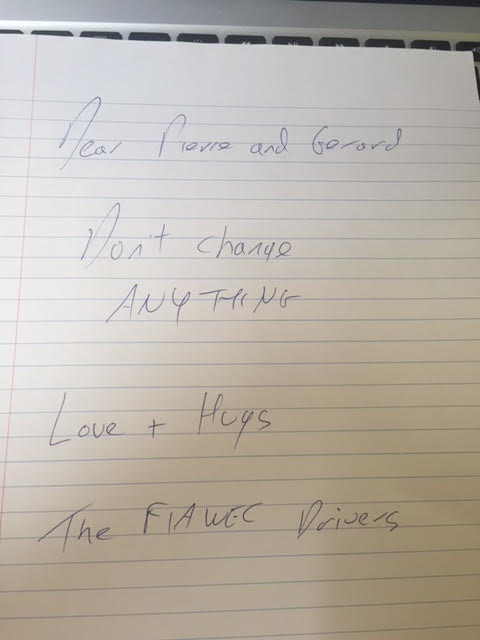 Dear Pierre and Gerard
Don't change
ANYTHING
Love + Hugs
The FIAWEC Drivers